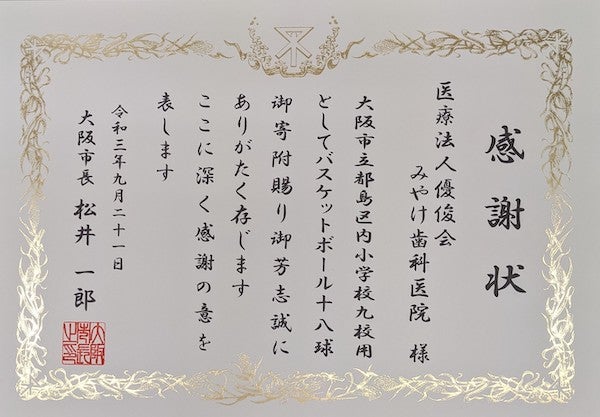 感謝状
医療法人優俊会
みやけ歯科医院 様
大阪市立都島区内小学校九校用
としてバスケットボール十八球
御寄附賜り御芳志誠に
ありがたく存じます
ここに深く感謝の意を
表します
令和三年九月二十一日
大阪市長 松井 一郎
大阪市長之印